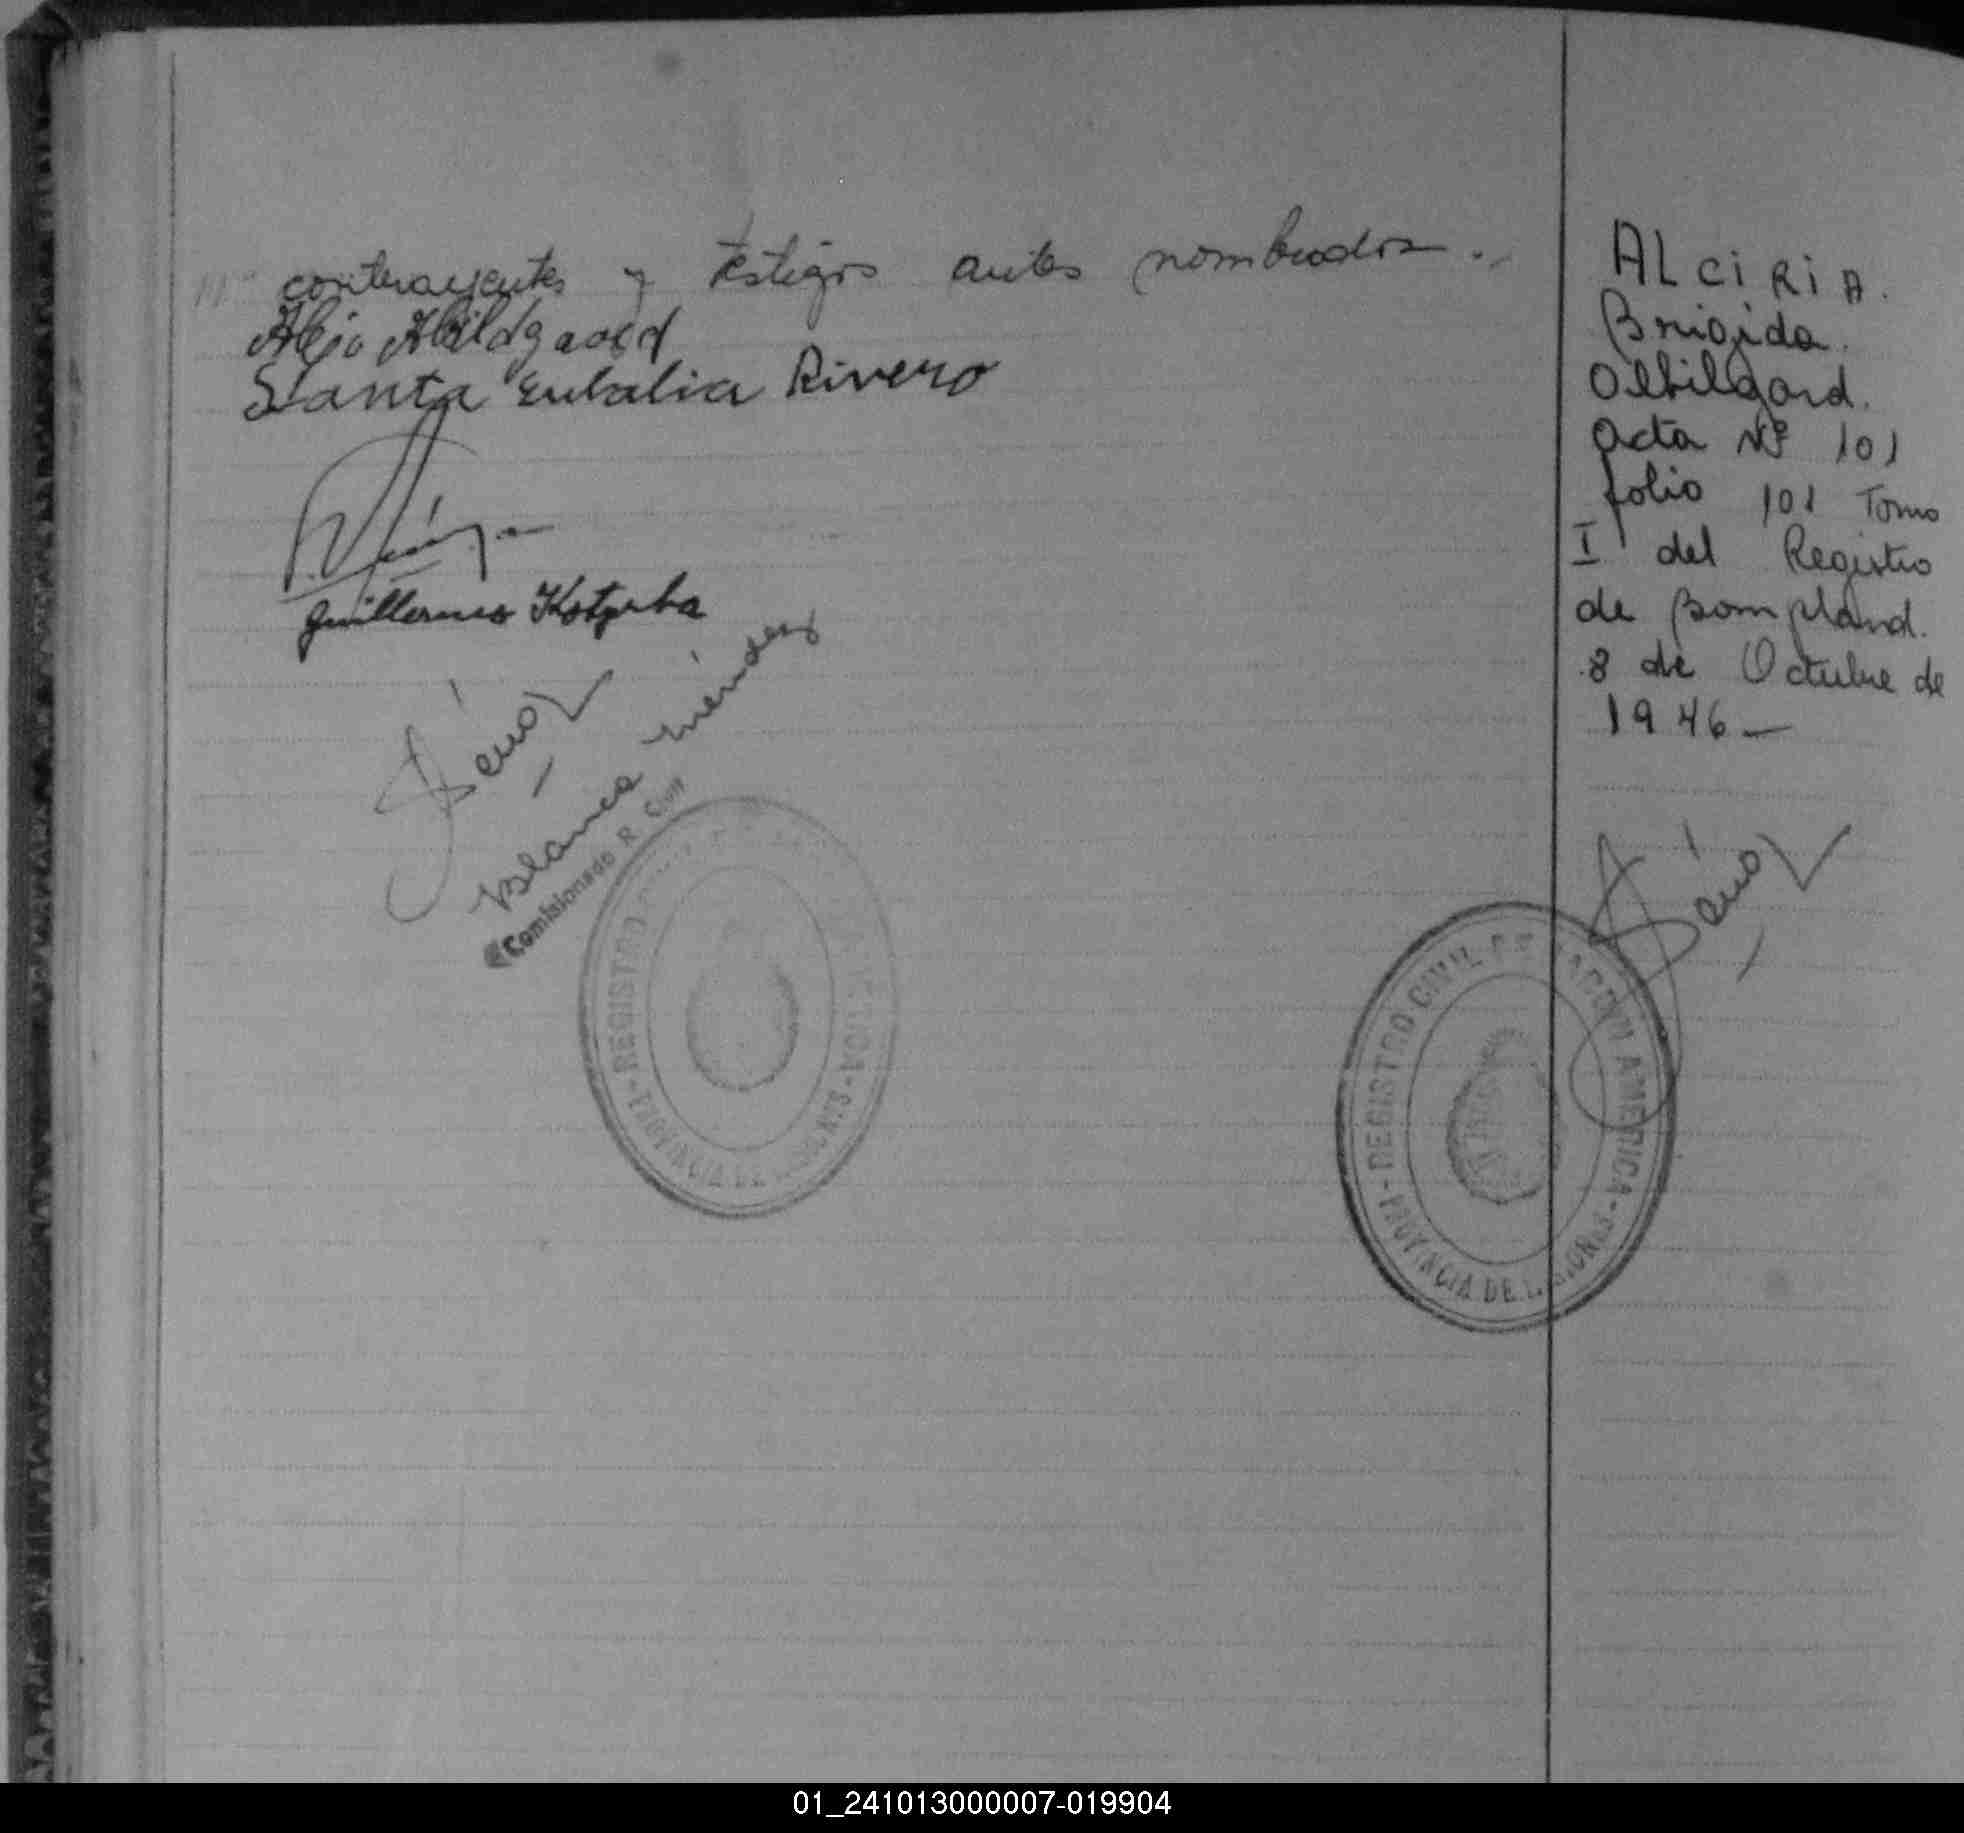 contrayentes y testigos antes nombrados.-
Alejo Abildgaard
Santa Eulalia Rivero
Guillermo Kotzuba
Blanca Méndez
Comisionado R. Civil
REGISTRO
PROVINCIA DE MISIONES
ALCIRIA.
Brigida.
Albilgard.
Acta Nº 101
folio 101 Tomo
I del Registro
de Bompland.
8 de Octubre de
1946-
REGISTRO CIVIL DE ACOVU AMERICA
PROVINCIA DE MISIONES
01_241013000007-019904